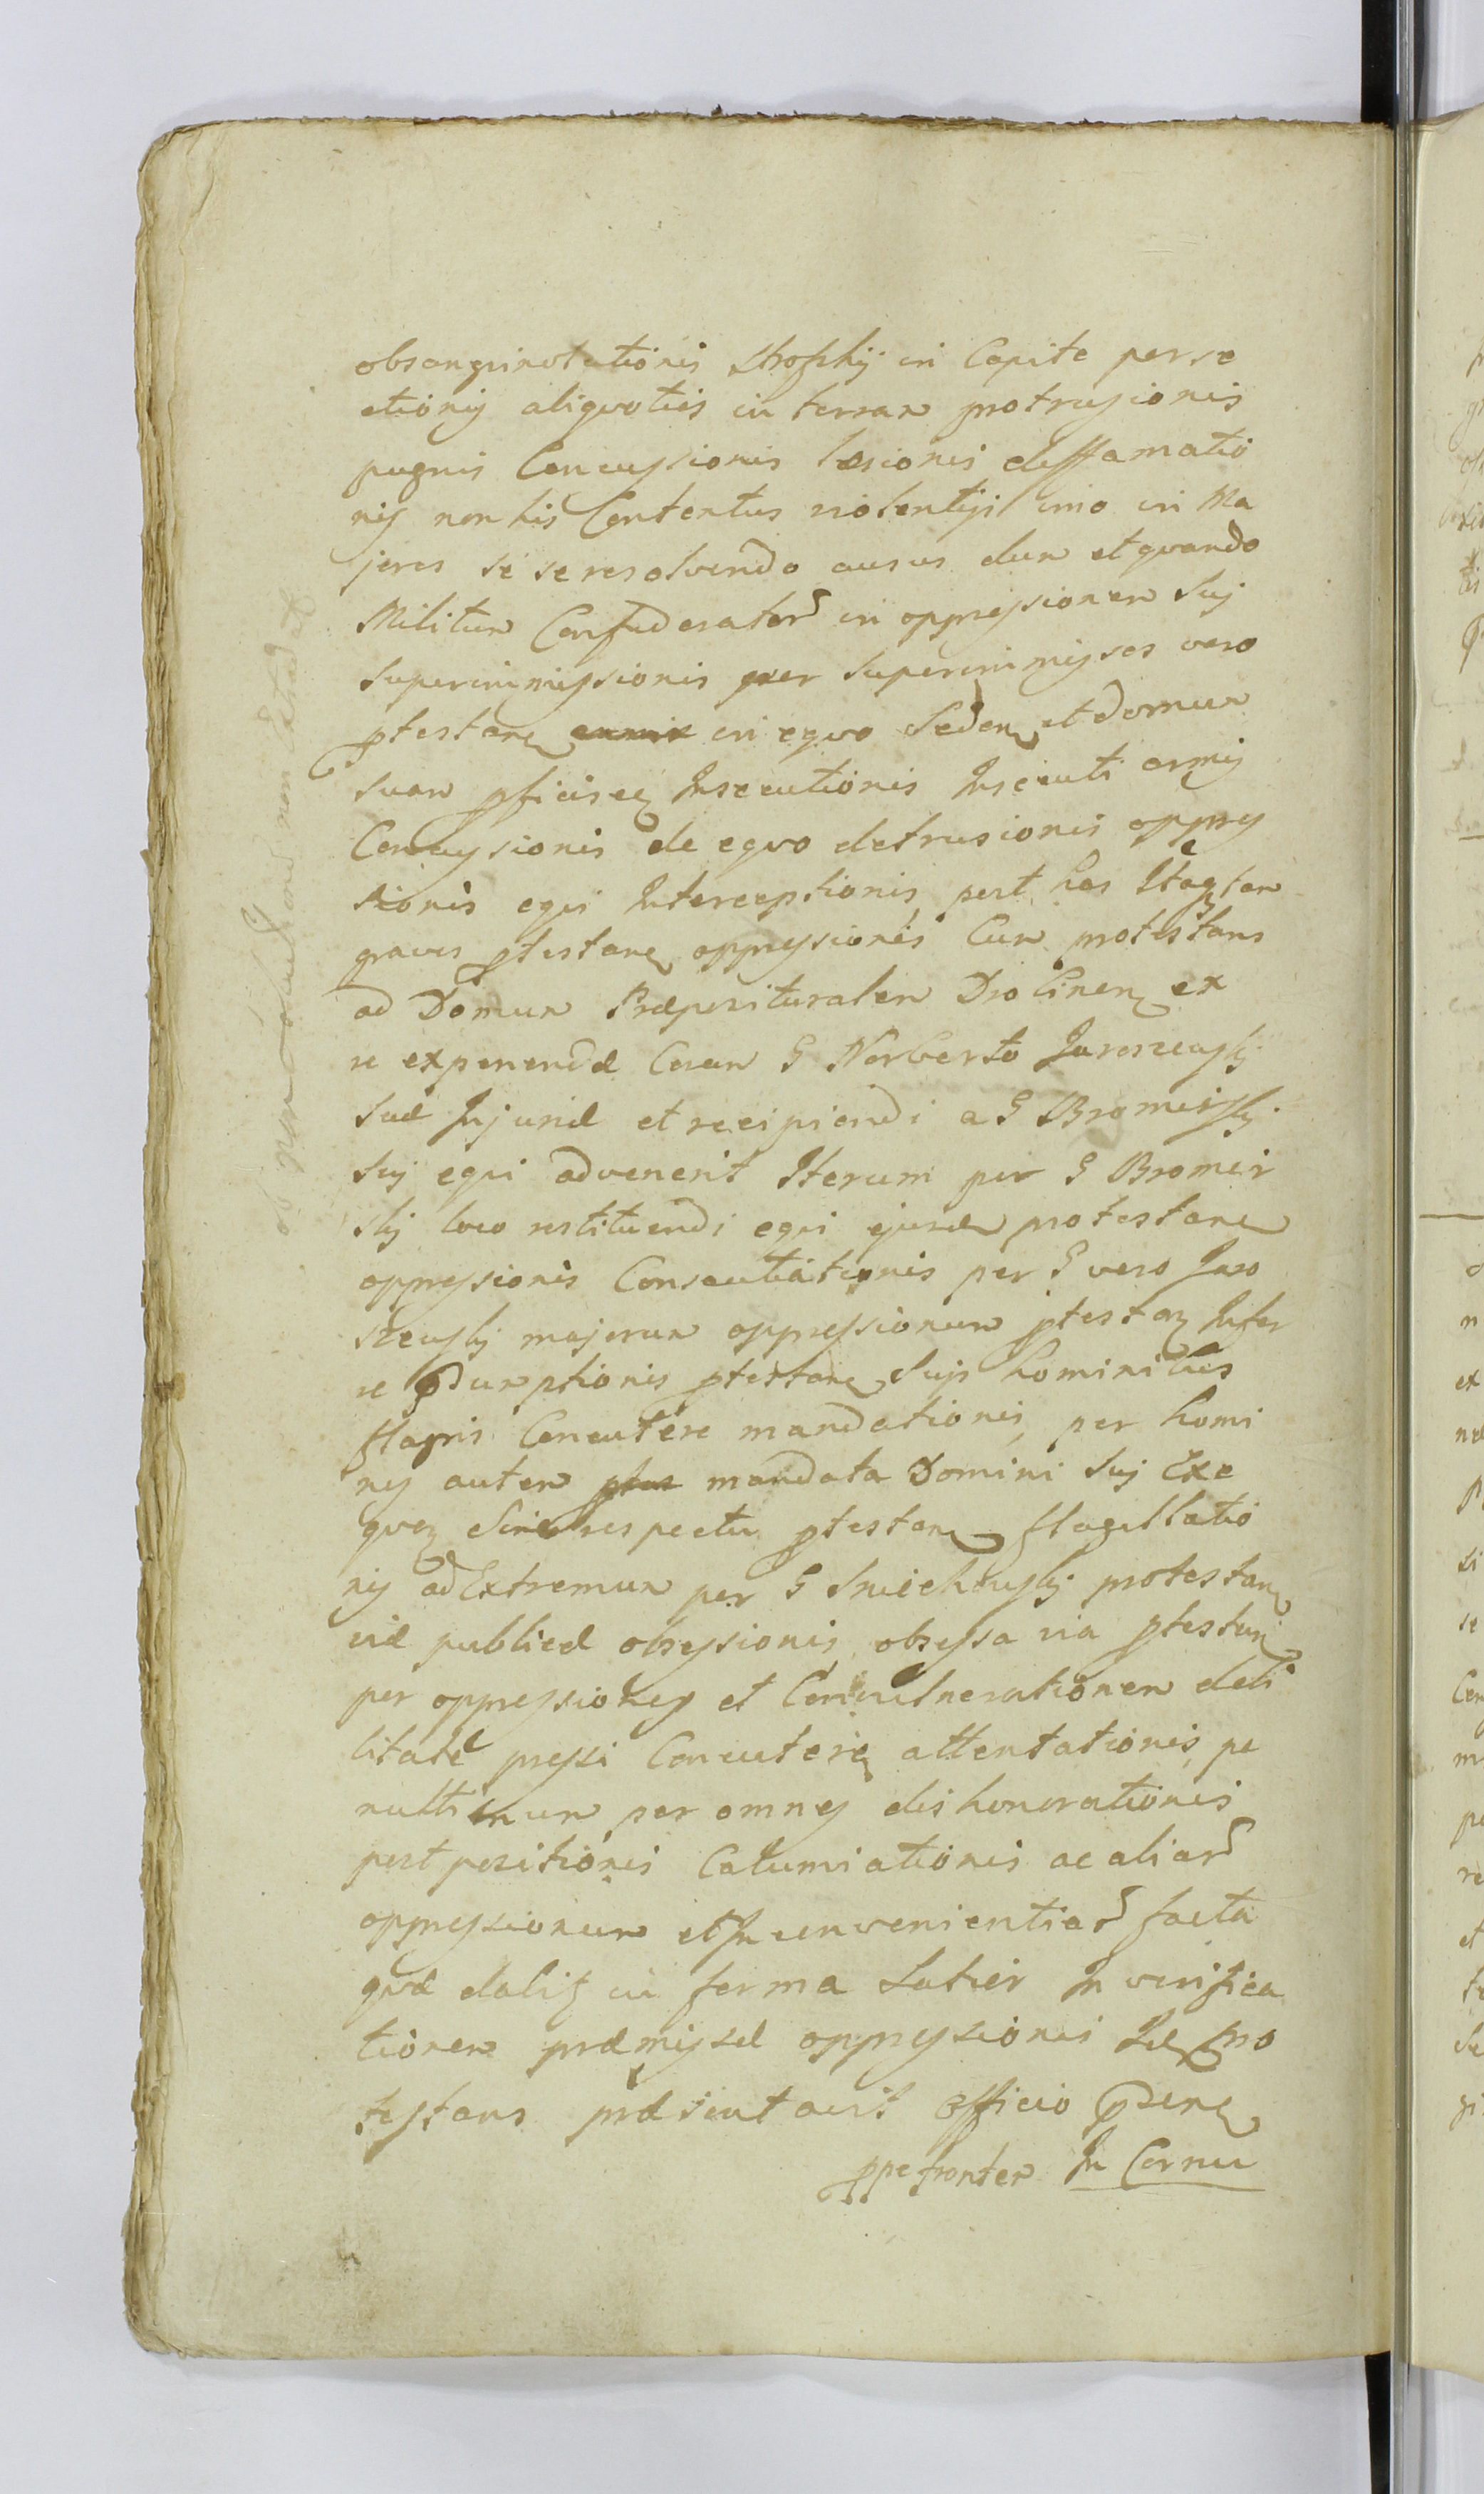 obsangvinolutionis Strofskij in Capite perse
ctionis aliqvoties in terram protrusionis
pugnis Concussionis læsionis diffamatio
nis non his Contentus violentijs imo in Ma
jores se se resolvendo ausus dum et qvando
Militum Confæderator in oppressionem Suj
Superimmissionis per Superimmissos vero
ptestane in eqvo Seden et domum
suam pficiscen Insecutionis Insecuti armis
Concussionis de eqvo detrusionis oppres
sionis eqvi Interceptionis post has Itaq tam
graves ptestane oppressiones Cum protestans
ad Domum Præposituralem Drohinen ex
se exponendæ Coram G Norberto Jaroszewskj
Suæ Injuriæ et recipiendi a G Bromirskj
Suj eqvi advenerit Iterum per G Bromir
skj loco restituendi eqvi ejusdem protestane
oppressionis Conscutiationis per G vero Jaro
szewskj majorum oppressionum ptestan Infer
re psumptionis ptestane Sujs hominibus
flagris Concutere mandationis per homi
nes autem mandata Domini Suj Exe
qven Sine respectu ptestane flagellatio
nis ad Extremum per G Smiechowskj protestan
viæ publicæ obsessionis obsessa via ptestan
per oppressiones et Convulnerationem debi
litate pressi Concuteren attentationis pe
nultimum per omnes dishonorationis
postpositionis Calumiationis ac aliar
oppressionum et Inconvenientiar facta
qvæ in forma Latior In verifica
tionem præmissæ oppressionis Idem pro
testans præsentavit Officio psenti
ppe frontem In Cornu